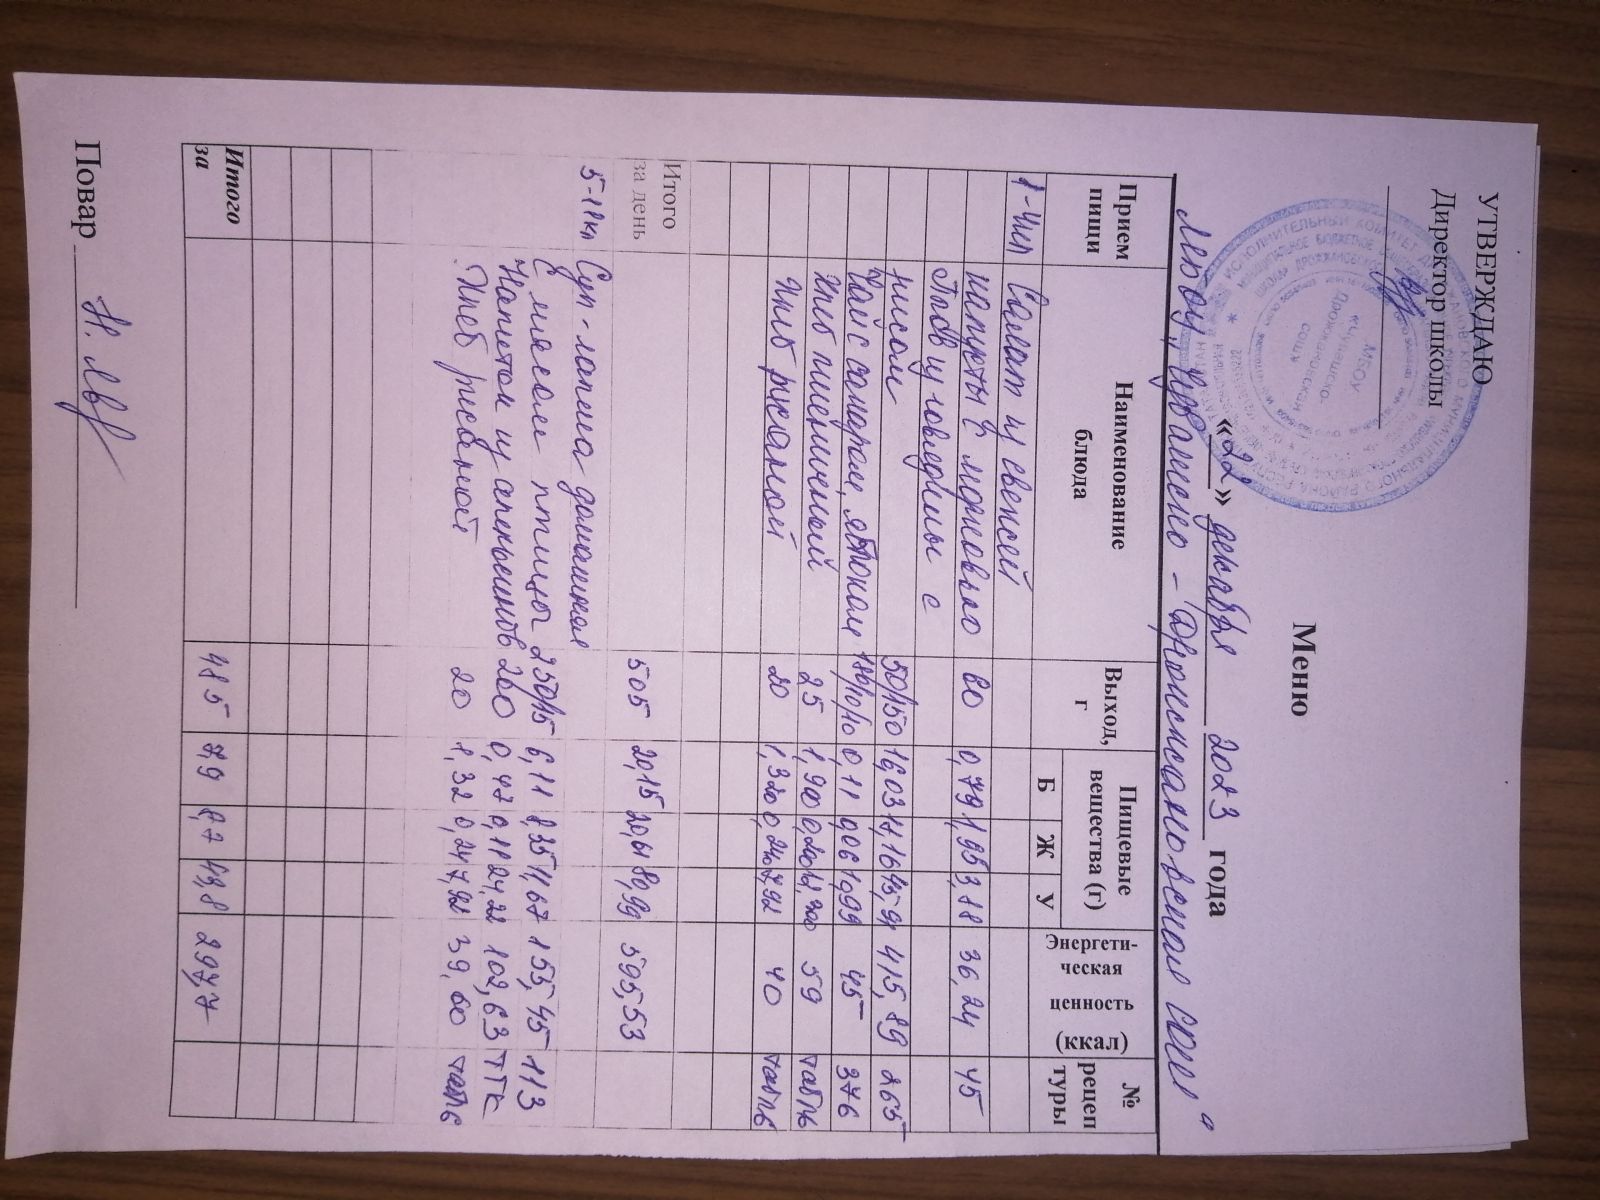 УТВЕРЖДАЮ
Директор школы
Меню
«22» декабря 2023 года
МБОУ „Чувашско - Дрожжановская СОШ"
Прием пищи
Наименование блюда
Выход, г
Пищевые вещества (г)
Б Ж У
Энергети-ческая ценность (ккал)
№ рецептуры
1-4кл Салат из свежей
капусты с морковью 60 0,79 1,95 3,88 36,24 45
Плов из говядины с
рисом 50/150 415,89 265
Чай с сахаром, яблоком 180/10/10 0,11 0,06 45 376
Хлеб пшеничный 25 1,900 59 табль
Хлеб ржаной 20 1,320 0,240 7,92 40 табль
Итого за день 505 20,15 20,61 80,99 595,53
5-11кл Суп-лапша домашняя
с мясом птицы 250/15 6,11 8,25 155,45 113
Напиток из апельсинов 200 0,47 24,22 102,63 ТТК
Хлеб ржаной 20 1,32 0,24 7,92 39,60 табль
Итого за 485 7,9 8,7 43,8 297,7
Повар